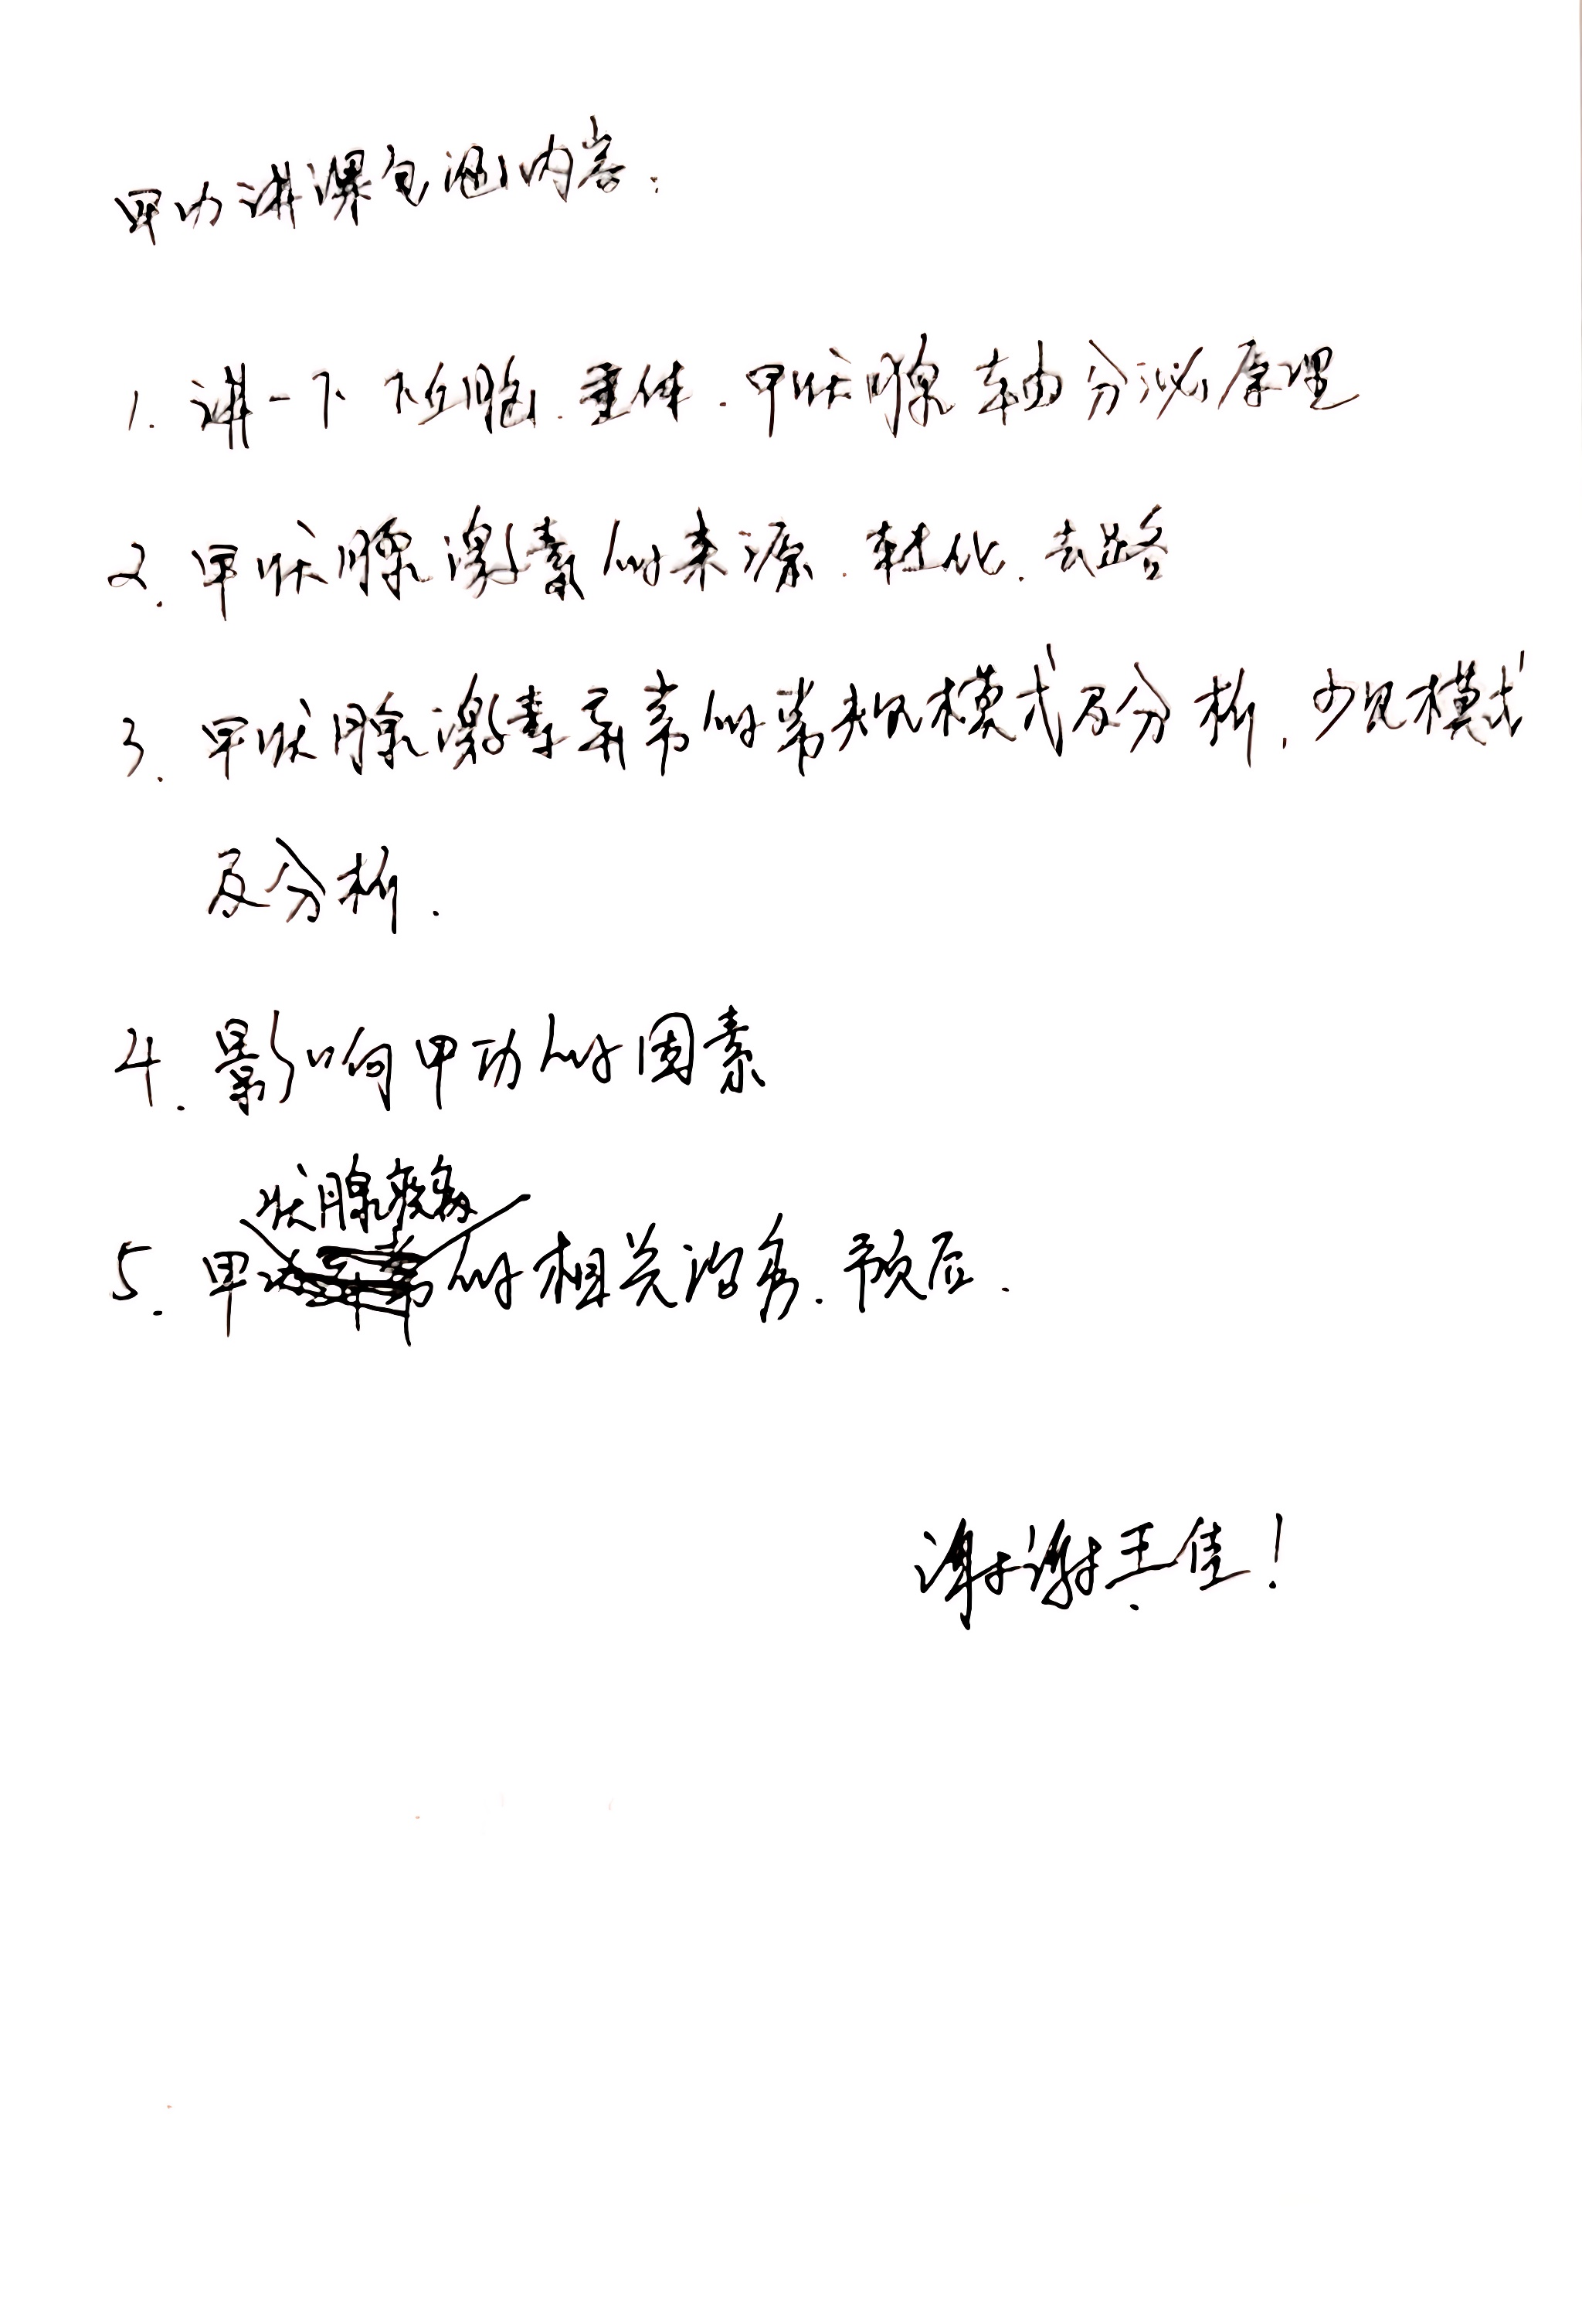 甲功讲课包涵内容:
1. 讲一下 下丘脑、垂体、甲状腺轴分泌原理
2. 甲状腺激素的来源、转化、去路
3. 甲状腺激素异常的常规模式及分析, 少见模式
及分析.
4. 影响甲功的因素
状腺疾病
5. 甲的相关治疗、预后.
谢谢王佳!